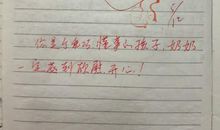 5/12
你是个乖巧、懂事的孩子,奶奶
一定感到欣慰、开心!